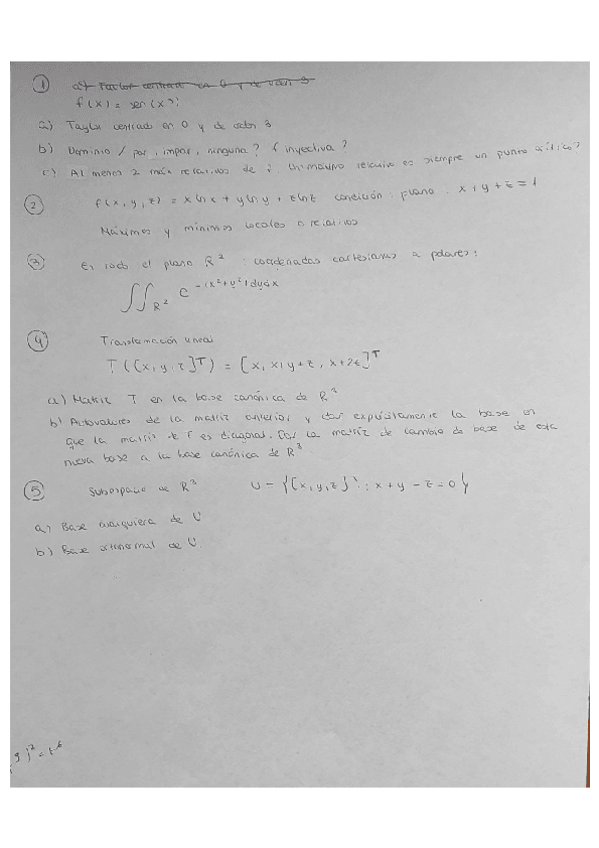 1 a) Taylor centrado en 0 y de orden 3
f(x) = sen(x³)
a) Taylor centrado en 0 y de orden 3
b) Dominio / par, impar, ninguna? f inyectiva?
c) Al menos 2 máx relativos de Un máximo relativo es siempre un punto crítico?
2 f(x, y, z) = x ln x + y ln y + z ln z condición: plano x + y + z = 1
Máximos y mínimos locales o relativos
3 En todo el plano R² : coordenadas cartesianas a polares:
∬ R² e -(x²+y²) dydx
4 Transformación lineal
T([x, y, z]ᵀ) = [x, x+y+z, x+2z]ᵀ
a) Matriz T en la base canónica de R³
b) Autovalores de la matriz anterior y dar explícitamente la base en
que la matriz de T es diagonal. Dar la matriz de cambio de base de esta
nueva base a la base canónica de R³
5 Subespacio de R³ U = {[x, y, z] : x + y - z = 0}
a) Base cualquiera de U
b) Base ortonormal de U.
)² = t⁶